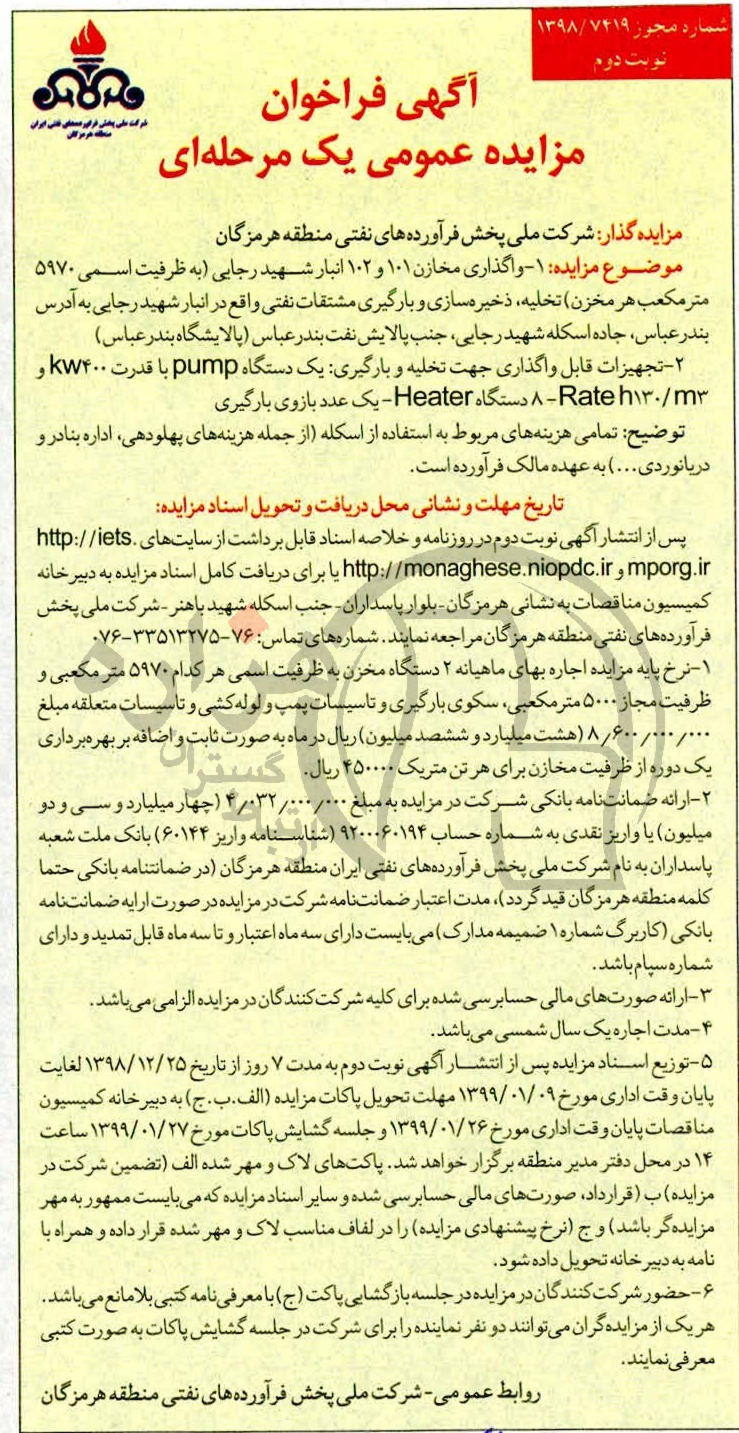 شماره مجوز ۱۳۹۸/۷۴۱۹
نوبت دوم
شرکت ملی پخش فرآورده‌های نفتی ایران
منطقه هرمزگان
آگهی فراخوان
مزایده عمومی یک مرحله‌ای
مزایده‌گذار: شرکت ملی پخش فرآورده‌های نفتی منطقه هرمزگان
موضوع مزایده: ۱-واگذاری مخازن ۱۰۱ و ۱۰۲ انبار شهید رجایی (به ظرفیت اسمی ۵۹۷۰
مترمکعب هر مخزن) تخلیه، ذخیره‌سازی و بارگیری مشتقات نفتی واقع در انبار شهید رجایی به آدرس
بندرعباس، جاده اسکله شهید رجایی، جنب پالایش نفت بندرعباس (پالایشگاه بندرعباس)
۲-تجهیزات قابل واگذاری جهت تخلیه و بارگیری: یک دستگاه pump با قدرت kw۴۰۰ و
Rate h۱۳۰/m۳ - ۸ دستگاه Heater - یک عدد بازوی بارگیری
توضیح: تمامی هزینه‌های مربوط به استفاده از اسکله (از جمله هزینه‌های پهلودهی، اداره بنادر و
دریانوردی...) به عهده مالک فرآورده است.
تاریخ مهلت و نشانی محل دریافت و تحویل اسناد مزایده:
پس از انتشار آگهی نوبت دوم در روزنامه و خلاصه اسناد قابل برداشت از سایت‌های http://iets.
mporg.ir و http://monaghese.niopdc.ir یا برای دریافت کامل اسناد مزایده به دبیرخانه
کمیسیون مناقصات به نشانی هرمزگان-بلوار پاسداران-جنب اسکله شهید باهنر-شرکت ملی پخش
فرآورده‌های نفتی منطقه هرمزگان مراجعه نمایند. شماره‌های تماس: ۷۶-۳۳۵۱۳۲۷۵-۰۷۶
۱-نرخ پایه مزایده اجاره بهای ماهیانه ۲ دستگاه مخزن به ظرفیت اسمی هر کدام ۵۹۷۰ متر مکعبی و
ظرفیت مجاز ۵۰۰۰ مترمکعبی، سکوی بارگیری و تاسیسات پمپ و لوله‌کشی و تاسیسات متعلقه مبلغ
۸٫۶۰۰٫۰۰۰٫۰۰۰ (هشت میلیارد و ششصد میلیون) ریال در ماه به صورت ثابت و اضافه بر بهره‌برداری
یک دوره از ظرفیت مخازن برای هر تن متریک ۴۵۰۰۰۰ ریال.
۲-ارائه ضمانت‌نامه بانکی شرکت در مزایده به مبلغ ۴٫۰۳۲٫۰۰۰٫۰۰۰ (چهار میلیارد و سی و دو
میلیون) یا واریز نقدی به شماره حساب ۹۲۰۰۰۶۰۱۹۴ (شناسنامه واریز ۶۰۱۴۴) بانک ملت شعبه
پاسداران به نام شرکت ملی پخش فرآورده‌های نفتی ایران منطقه هرمزگان (در ضمانتنامه بانکی حتما
کلمه منطقه هرمزگان قید گردد)، مدت اعتبار ضمانت‌نامه شرکت در مزایده در صورت ارایه ضمانت‌نامه
بانکی (کاربرگ شماره ۱ ضمیمه مدارک) می‌بایست دارای سه ماه اعتبار و تا سه ماه قابل تمدید و دارای
شماره سپام باشد.
۳-ارائه صورت‌های مالی حسابرسی شده برای کلیه شرکت‌کنندگان در مزایده الزامی می‌باشد.
۴-مدت اجاره یک سال شمسی می‌باشد.
۵-توزیع اسناد مزایده پس از انتشار آگهی نوبت دوم به مدت ۷ روز از تاریخ ۱۳۹۸/۱۲/۲۵ لغایت
پایان وقت اداری مورخ ۱۳۹۹/۰۱/۰۹ مهلت تحویل پاکات مزایده (الف.ب.ج) به دبیرخانه کمیسیون
مناقصات پایان وقت اداری مورخ ۱۳۹۹/۰۱/۲۶ و جلسه گشایش پاکات مورخ ۱۳۹۹/۰۱/۲۷ ساعت
۱۴ در محل دفتر مدیر منطقه برگزار خواهد شد. پاکت‌های لاک و مهر شده الف (تضمین شرکت در
مزایده) ب (قرارداد، صورت‌های مالی حسابرسی شده و سایر اسناد مزایده که می‌بایست ممهور به مهر
مزایده‌گر باشد) و ج (نرخ پیشنهادی مزایده) را در لفاف مناسب لاک و مهر شده قرار داده و همراه با
نامه به دبیرخانه تحویل داده شود.
۶-حضور شرکت‌کنندگان در مزایده در جلسه بازگشایی پاکت (ج) با معرفی‌نامه کتبی بلامانع می‌باشد.
هر یک از مزایده‌گران می‌توانند دو نفر نماینده را برای شرکت در جلسه گشایش پاکات به صورت کتبی
معرفی نمایند.
روابط عمومی-شرکت ملی پخش فرآورده‌های نفتی منطقه هرمزگان